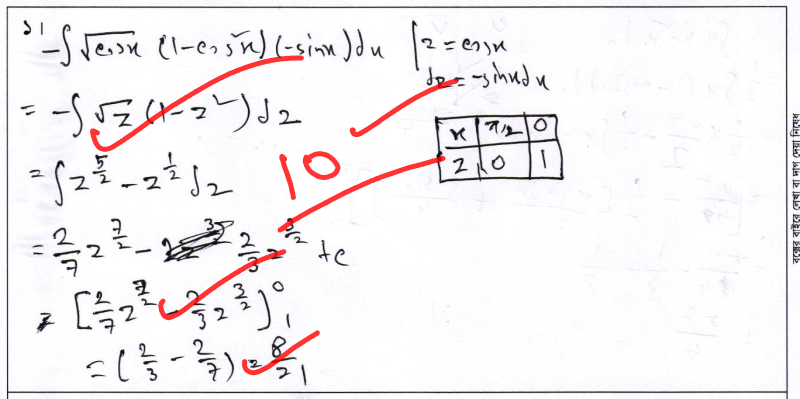 ১।
-∫√cosx (1-cos²x)(-sinx)dx
z = cosx
dz = -sinxdx
= -∫√z (1-z²)dz
x π/2 0
z 0 1
= ∫z^{5/2} - z^{1/2} dz
10
= 2/7 z^{7/2} - 2/3 z^{3/2} +c
= [2/7 z^{7/2} - 2/3 z^{3/2}]₁⁰
= (2/3 - 2/7) = 8/21
বক্সের বাইরে লেখা বা দাগ দেয়া নিষেধ